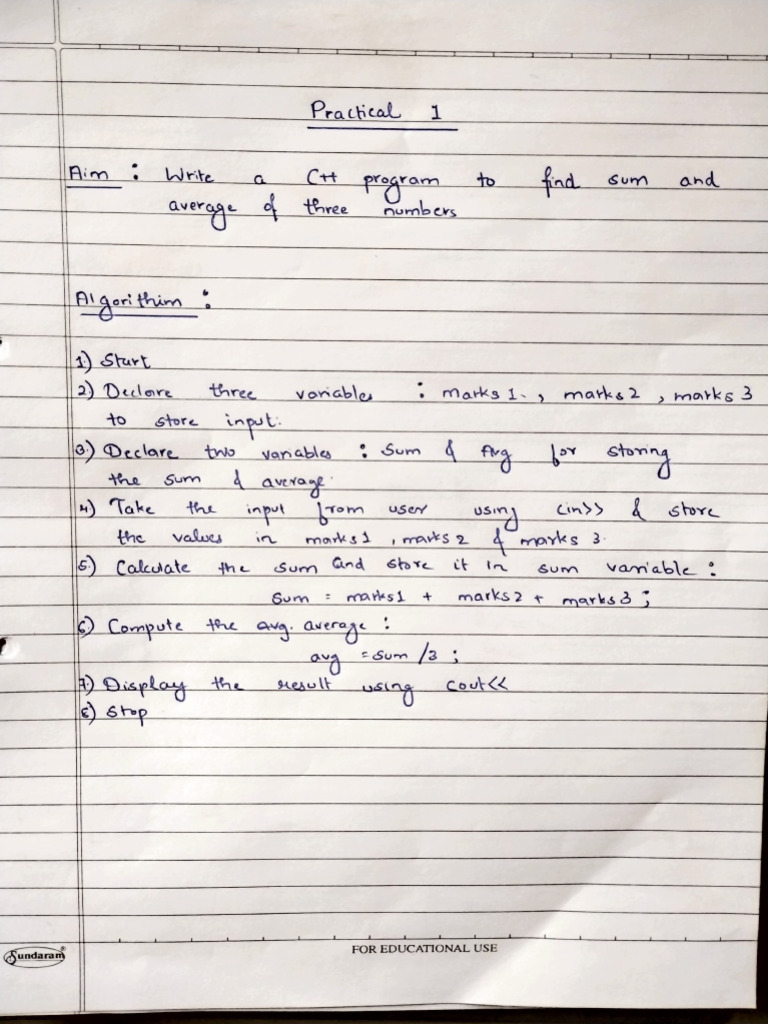 Practical 1
Aim : Write a C++ program to find sum and
average of three numbers
Algorithim :
1) Start
2) Declare three variables : marks 1. , marks 2 , marks 3
to store input.
3) Declare two variables : Sum & Avg for storing
the sum & average.
4) Take the input from user using Cin>> & store
the values in marks 1 , marks 2 & marks 3.
5) Calculate the sum and store it in sum variable :
Sum = marks1 + marks2 + marks3 ;
6) Compute the avg. average :
avg = sum /3 ;
7) Display the result using cout<<
8) Stop
Sundaram®
FOR EDUCATIONAL USE